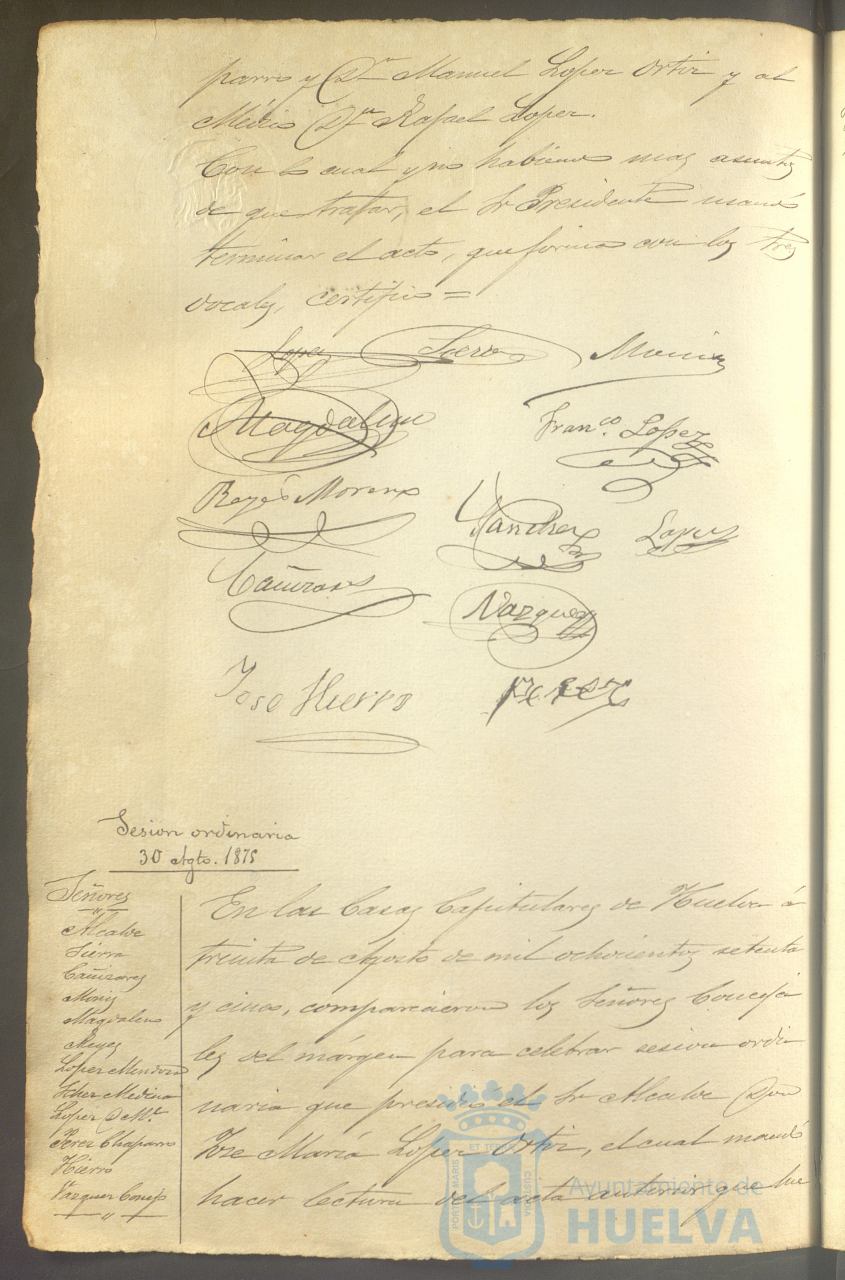 parro y Dn Manuel Lopez Ortiz y al
Médico Dn Rafael Lopez.
Con lo cual y no habiendo mas asuntos
de que tratar, el Sr Presidente mandó
terminar el acto, que firma con los Sres
vocales, certifico =
Lopez Sierra
Magdaleno Franco. Lopez
Reyes Moreno
Sanchez Lopez
Cañizares
Vazquez
Jose Hierro
Sesion ordinaria
30 Agto. 1875
Señores
"
Alcalde
Sierra
Cañizares
Magdaleno
Reyes
Lopez Mendoza
Schez Medina
Lopez D. Ml.
Perez Chaparro
Hierro
Vazquez Conejo
"
En las Casas Capitulares de Huelva á
treinta de Agosto de mil ochocientos setenta
y cinco, comparecieron los Señores Conceja
les del márgen para celebrar sesion ordi
naria que presidió el Sr Alcalde Don
Jose María Lopez Ortiz, el cual mandó
hacer lectura del acta anterior que fue
PORTUS MARIS ET TERRAE CUSTODIA
Ayuntamiento de
HUELVA